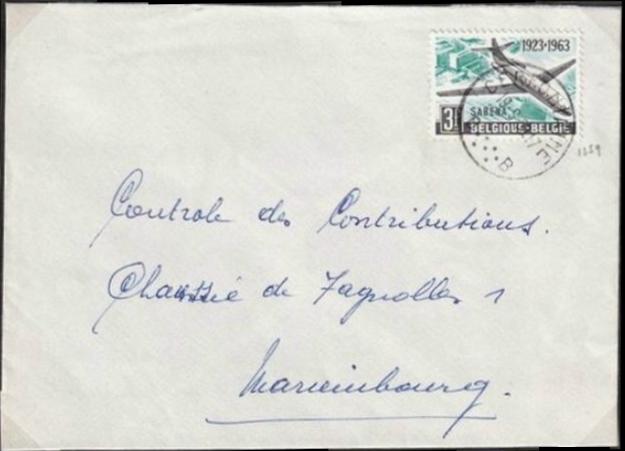 1923•1963
SABENA
3F
BELGIQUE-BELGIË
B
1259
Controle des Contributions.
Chaussée de Fagnolles 1
Mariembourg.